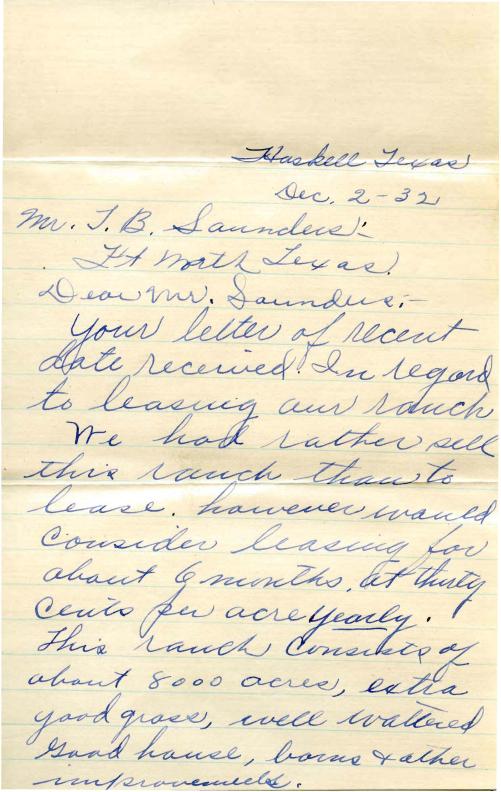 Haskell Texas
Dec. 2-32
Mr. T. B. Saunders:-
Ft Worth Texas.
Dear Mr. Saunders:-
Your letter of recent
date received. In regard
to leasing our ranch
We had rather sell
this ranch than to
lease. however would
consider leasing for
about 6 months, at thirty
cents per acre yearly.
This ranch consists of
about 8000 acres, extra
good grass, well wattered
good house, barns & other
improvements.